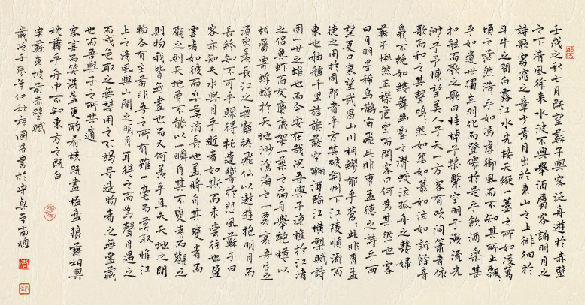 壬戌之秋七月既望蘇子與客泛舟遊於赤壁
之下清風徐來水波不興舉酒屬客誦明月之
詩歌窈窕之章少焉月出於東山之上徘徊於
斗牛之間白露橫江水光接天縱一葦之所如凌萬
頃之茫然浩浩乎如馮虛御風而不知其所止飄飄
乎如遺世獨立羽化而登仙於是飲酒樂甚
扣舷而歌之歌曰桂棹兮蘭槳擊空明兮泝流光
渺渺兮予懷望美人兮天一方客有吹洞簫者倚
歌而和之其聲嗚嗚然如怨如慕如泣如訴餘音
嫋嫋不絕如縷舞幽壑之潛蛟泣孤舟之嫠婦
蘇子愀然正襟危坐而問客曰何為其然也客
曰月明星稀烏鵲南飛此非曹孟德之詩乎西
望夏口東望武昌山川相繆鬱乎蒼蒼此非孟
德之困於周郎者乎方其破荊州下江陵順流而
東也舳艫千里旌旗蔽空釃酒臨江橫槊賦詩
固一世之雄也而今安在哉況吾與子漁樵於江渚
之上侶魚蝦而友麋鹿駕一葉之扁舟舉匏樽以
相屬寄蜉蝣於天地渺滄海之一粟哀吾生之
須臾羨長江之無窮挾飛仙以遨遊抱明月而
長終知不可乎驟得託遺響於悲風蘇子曰
客亦知夫水與月乎逝者如斯而未嘗往也盈
虛者如彼而卒莫消長也蓋將自其變者而
觀之則天地曾不能以一瞬自其不變者而觀之
則物與我皆無盡也而又何羨乎且夫天地之間
物各有主苟非吾之所有雖一毫而莫取惟江
上之清風與山間之明月耳得之而為聲目遇之
而成色取之無禁用之不竭是造物者之無盡藏
也而吾與子之所共適
客喜而笑洗盞更酌肴核既盡杯盤狼藉相與
枕藉乎舟中不知東方之既白
蘇東坡前赤壁賦